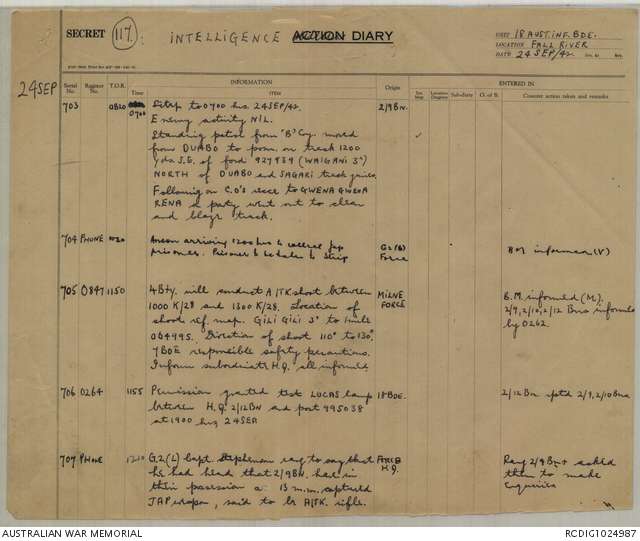 SECRET 117. INTELLIGENCE ACTION DIARY
UNIT 18 AUST. INF. BDE.
LOCATION FALL RIVER
DATE 24 SEP/42
24 SEP
Serial No. Register No. T.O.R. Time INFORMATION ITEM Origin ENTERED IN Sit. Map Location Diagram Sub-duty O. of B. Counter action taken and remarks
703 0820 0700 Sitrep to 0700 hrs 24 SEP/42. 2/9 BN.
Enemy activity NIL.
Standing patrol from 'B' Coy. moved
from DUABO to posn. on track 1200
yds S.E. of ford 927939 (WAIGANI 3")
NORTH of DUABO and SAGARI track junc.
Following on C.O's recce to GWENA GWENA
RENA a party went out to clear
and blaze track.
704 PHONE arriving 1200 hrs to collect Jap G2(B) Force B.M informed (V)
prisoner. Prisoner to be taken to Strip
705 0847 1150 4 Bty. will conduct A/TK shoot between MILNE FORCE B.M. informed (M).
1000 K/28 and 1300 K/28. Location of 2/9, 2/10, 2/12 Bns informed
shoot ref. map. GILI GILI 3" to 1 mile by 0262.
004995. Direction of shoot 110° to 130°.
7 BDE responsible safety precautions.
Inform subordinate H.Q. all informed
706 0264 1155 Permission granted test LUCAS lamp 18 BDE. 2/12 Bn rptd 2/9, 2/10 Bns
between H.Q. 2/12 BN and post 995038
at 1900 hrs 24 SEP.
707 PHONE 1210 G.2(L) Capt. Stephenson rang to say that FORCE H.Q. Rang 2/9 Bn & asked
he had heard that 2/9 BN. had in them to make
their possession a 13 m.m. captured enquiries
JAP weapon, said to be A/TK. rifle.
AUSTRALIAN WAR MEMORIAL RCDIG1024987